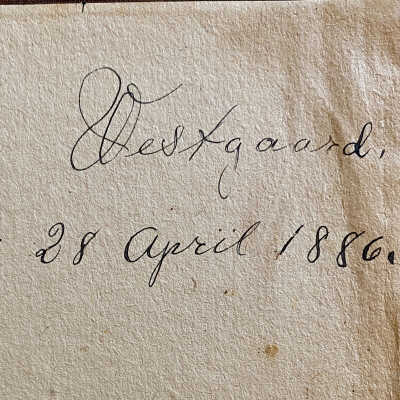 Westgaard.
28 April 1886.